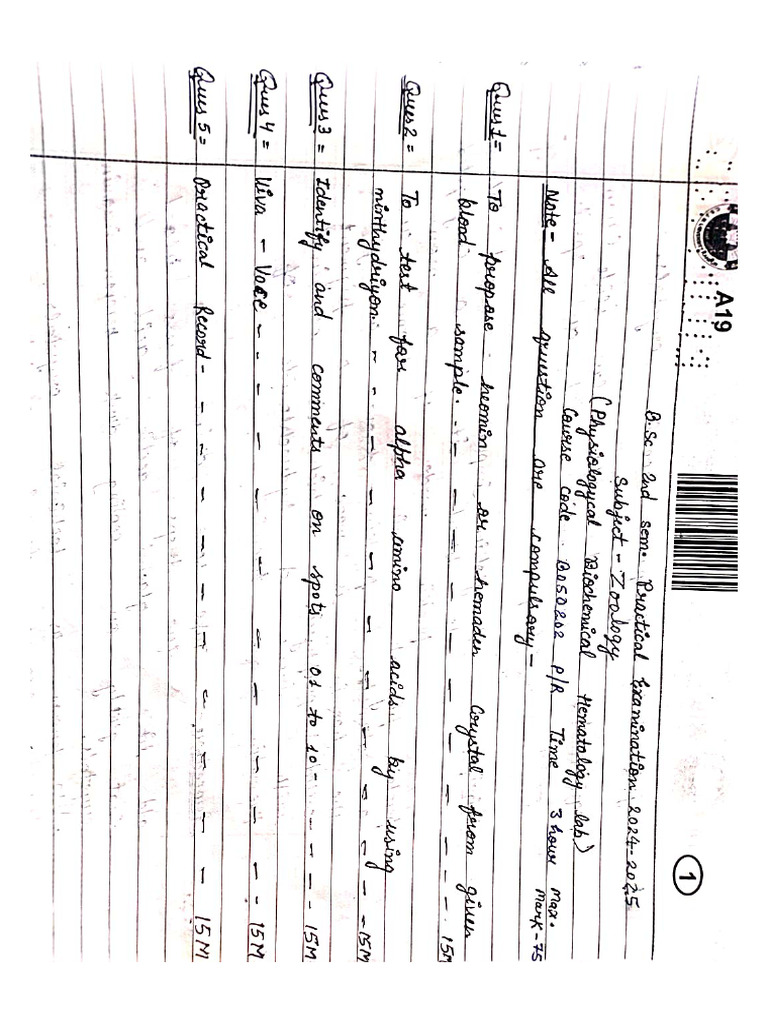 A19
1
B.Sc 2nd sem. Practical Examination 2024-2025
Subject - Zoology
(Physiologycal Biochemical Hematology lab)
Course code B050202 P/R Time 3 hour Max. Mark-75
Note - All question are compulsary -
Ques 1 = To propose heomin or hemaden Corystal from given
blood sample. - - - - - - - - - 15M
Ques 2 = To test for alpha amino acids by using
ninthydriyon. - - - - - - - - - -15M
Ques 3 = Identify and comments on spots 01 to 10 - - - - - 15M
Ques 4 = Viva - Voce - - - - - - - - - - - 15M
Ques 5 = Practical Record - - - - - - - - - - 15M